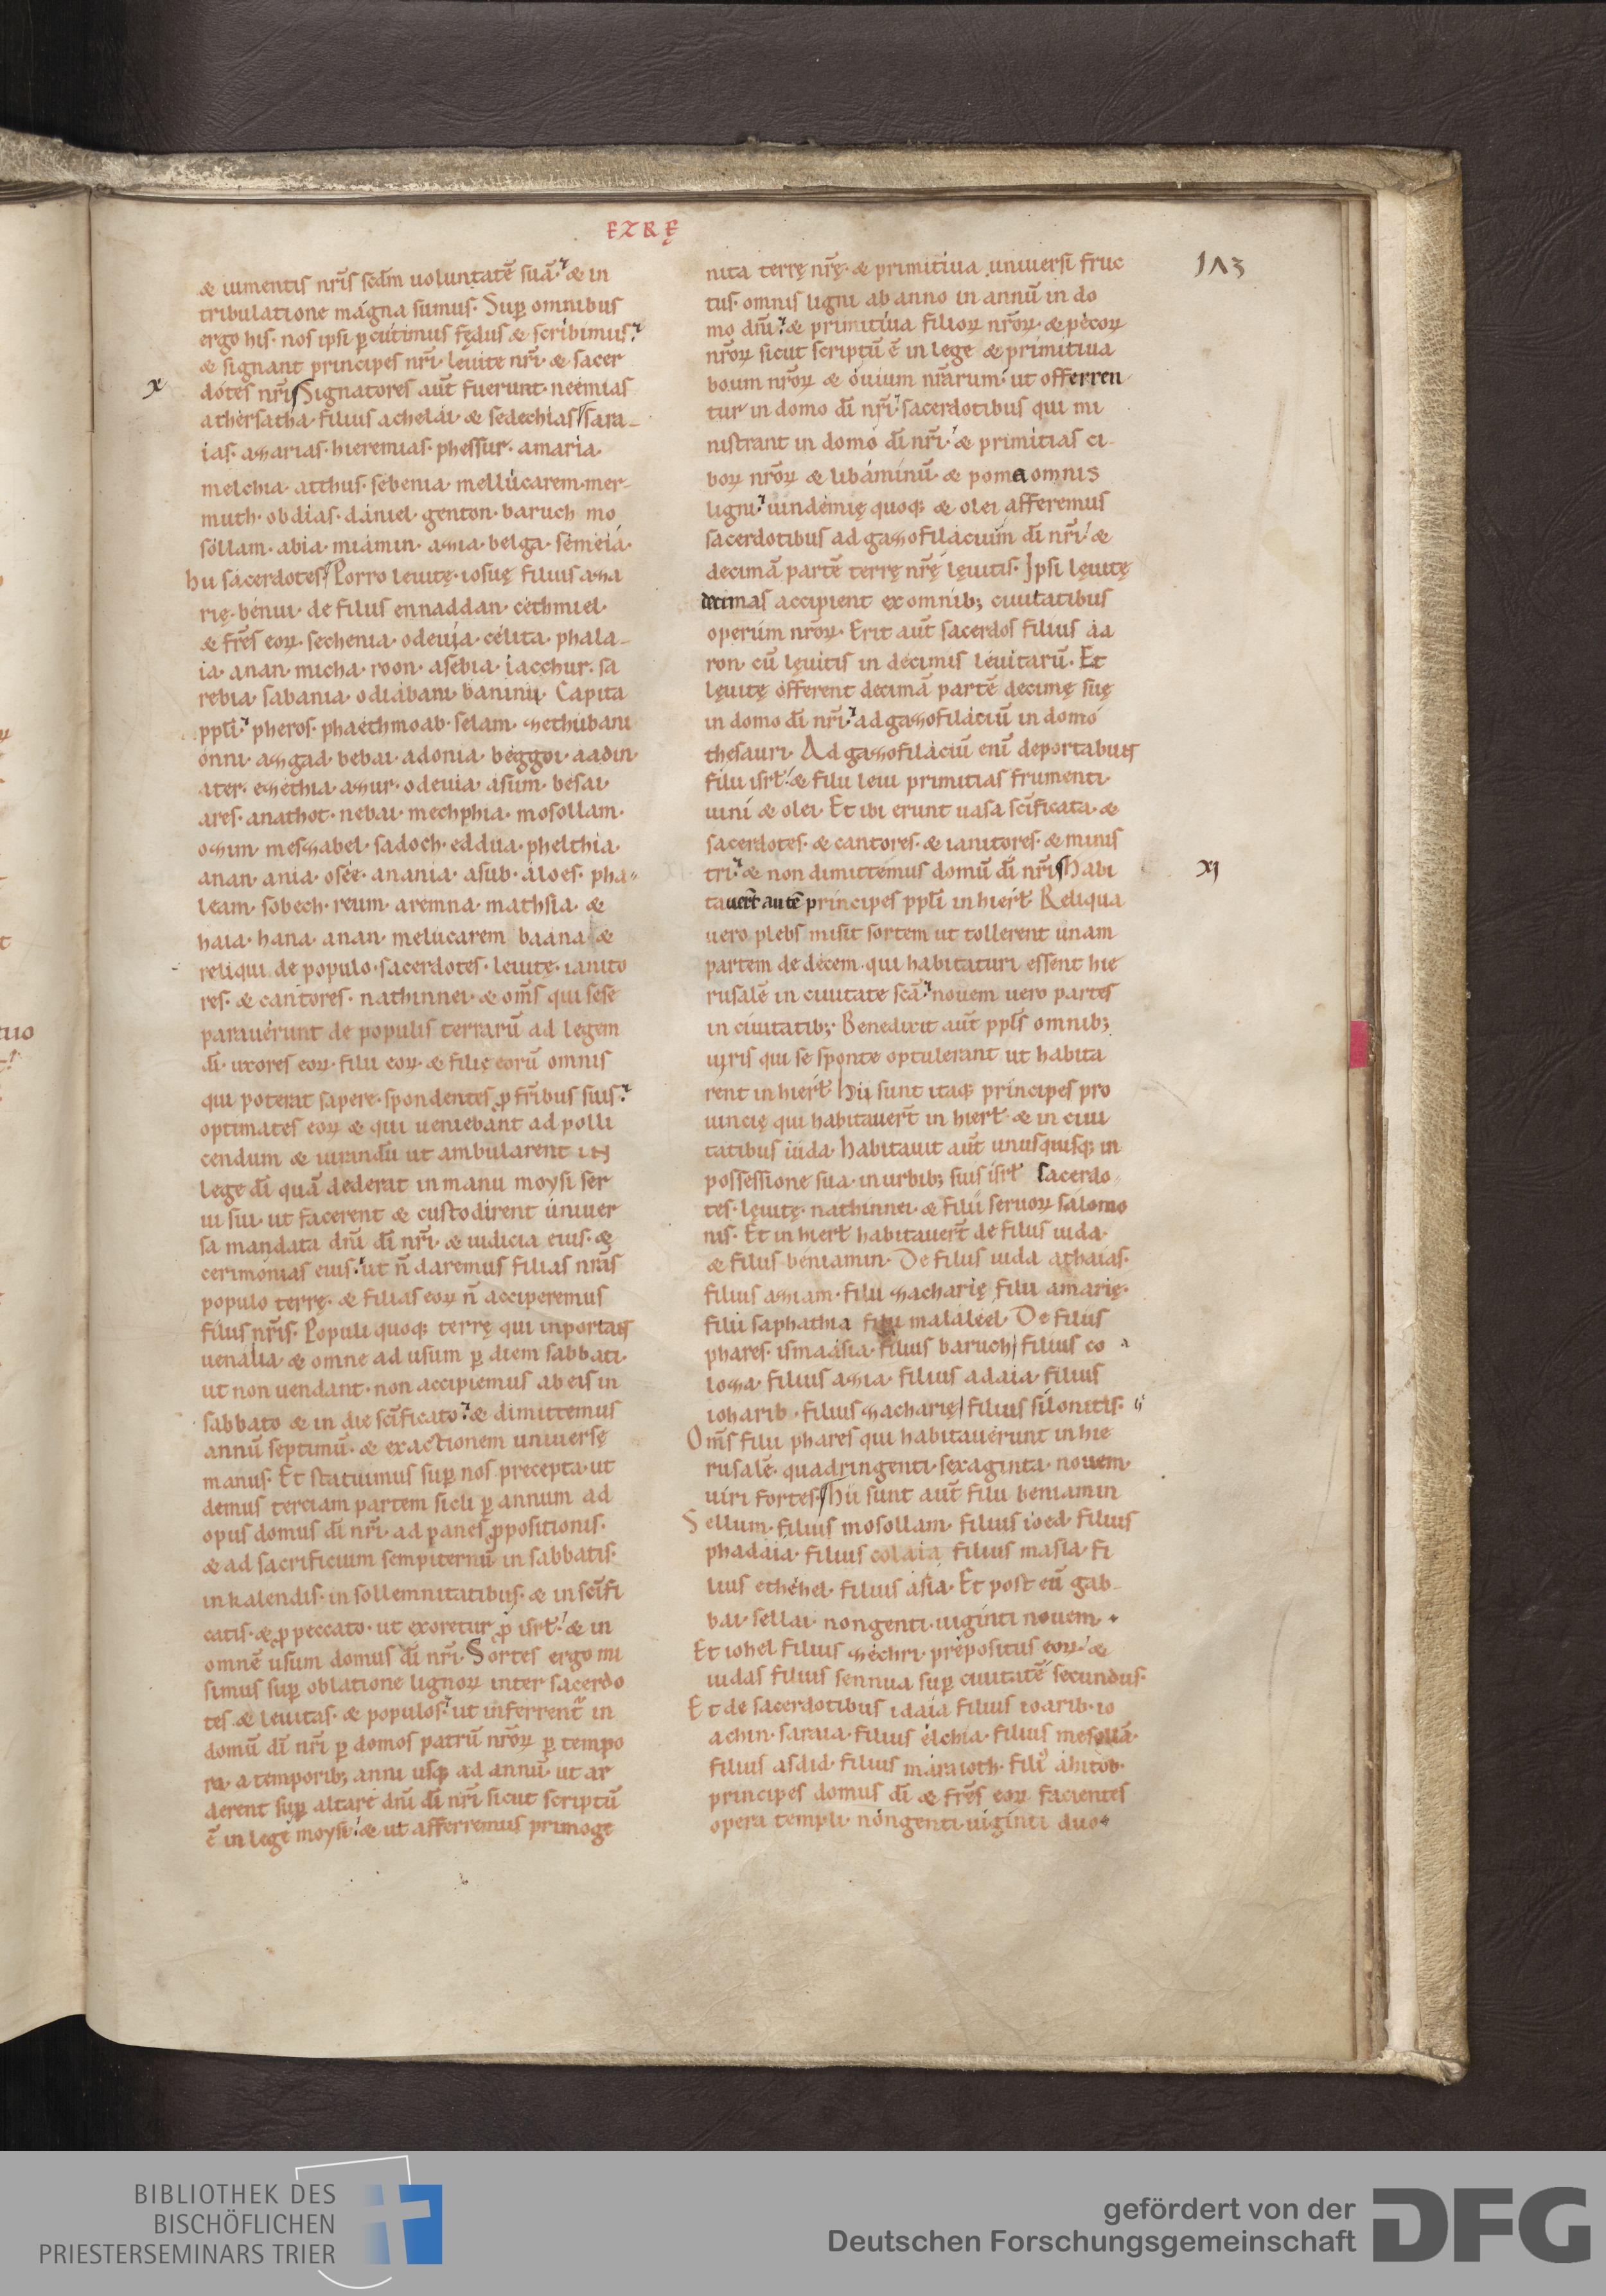 EZRĘ
1Λ3
& iumentis nr̄is scdm̄ uoluntatē suā· & in
tribulatione magna sumus· Suꝑ omnibus
ergo his· nos ipsi ꝑcutimus fędus & scribimus·
& signant principes nr̄i· leuite nr̄i· & sacer
x
dotes nr̄i Signatores aut̄ fuerunt· neemias
athersatha· filius achelai· & sedechias sara-
ias· azarias· hieremias· phessur· amaria·
melchia· atthus· sebenia· mellucarem· mer-
muth· obdias· daniel· genton· baruch· mo
sollam· abia· miamin· azia· belga· semeia·
hii sacerdotes· Porro leuitę· iosuę filius aza
rię· bennui· de filiis ennaddan· cethmiel·
& fr̄es eoꝝ· sechenia· odeuia· celita· phala-
ia· anan· micha· roon· asebia· iacchur· sa
rebia· sabania· odia· bani· baninu· Capita
ppl̄i· pheros· phaethmoab· selam· zethubani
onni· azgad· bebai· adonia· beggoi· aadin·
ater· ezethia· azur· odeuia· asum· besai·
ares· anathot· nebai· mechphia· mosollam·
ozim· meszabel· sadoch· eddua· phelthia·
anan· ania· osee· anania· asub· aloes· pha-
leam· sobech· reum· aremna· mathsia· &
haia· hana· anan· melucarem baana· &
reliqui de populo· sacerdotes· leuitę· ianito
res· & cantores· nathinnei· & om̄s qui sese
parauerunt de populis terrarū ad legem
dī· uxores eoꝝ· filii eoꝝ· & filię eorū omnis
qui poterat sapere· spondentes ꝓ fr̄ibus suis·
optimates eoꝝ & qui ueniebant ad polli
cendum & iurandū ut ambularent in
lege dī quā dederat in manu moysi ser
ui sui· ut facerent & custodirent uniuer
sa mandata dn̄i dī nr̄i· & iudicia eius· &
cerimonias eius· ut n̄ daremus filias nr̄as
populo terrę· & filias eoꝝ n̄ acciperemus
filiis nr̄is· Populi quoq; terrę qui inportant
uenalia· & omne ad usum ꝑ diem sabbati·
ut non uendant· non accipiemus ab eis in
sabbato & in die scīficato· & dimittemus
annū septimū· & exactionem uniuersę
manus· Et statuimus suꝑ nos precepta· ut
demus terciam partem sicli ꝑ annum ad
opus domus dī nr̄i· ad panes ꝓpositionis·
& ad sacrificium sempiternū in sabbatis·
in kalendis· in sollemnitatibus· & in scīfi
catis· & ꝓ peccato· ut exoretur ꝓ isrł· & in
omnē usum domus dī nr̄i· Sortes ergo mi
simus suꝑ oblatione lignoꝝ inter sacerdo
tes & leuitas· & populos· ut inferrent̄ in
domū dī nr̄i ꝑ domos patrū nr̄oꝝ ꝑ tempo
ra· a temporib; anni usq; ad annū· ut ar
derent suꝑ altare dn̄i dī nr̄i sicut scriptū
ē in lege moysi· & ut afferremus primoge
nita terrę nr̄ę· & primitiua uniuersi fruc
tus· omnis ligni ab anno in annū in do
mo dn̄i· & primitiua filioꝝ nr̄oꝝ· & pecoꝝ
nr̄oꝝ sicut scriptū ē in lege & primitiua
boum nr̄oꝝ & ouium nr̄arum· ut offerren
tur in domo dī nr̄i· sacerdotibus qui mi
nistrant in domo dī nr̄i· & primitias ci
boꝝ nr̄oꝝ & libaminū· & poma omnis
ligni· uindemię quoq; & olei afferemus
sacerdotibus ad gazofilacium dī nr̄i· &
decimā partē terrę nr̄ę lęuitis· Ipsi lęuitę
decimas accipient ex omnib; ciuitatibus
operum nr̄oꝝ· Erit aut̄ sacerdos filius aa
ron· cū lęuitis in decimis leuitarū· Et
lęuitę offerent decimā partē decimę suę
in domo dī nr̄i· ad gazofilaciū in domo
thesauri· Ad gazofilaciū enī deportabunt
filii isrł· & filii leui primitias frumenti·
uini & olei· Et ibi erunt uasa scīficata· &
sacerdotes· & cantores· & ianitores· & minis
tri· & non dimittemus domū dī nr̄i Habi
xj
tauer̄t autē principes ppl̄i in hierł· Reliqua
uero plebs misit sortem ut tollerent unam
partem de decem· qui habitaturi essent hie
rusalē in ciuitate scā· nouem uero partes
in ciuitatib;· Benedixit aut̄ ppl̄s omnib;
uiris qui se sponte optulerant ut habita
rent in hierł· Hii sunt itaq; principes pro
uincię qui habitauer̄t in hierł· & in ciui
tatibus iuda· Habitauit aut̄ unusquisq; in
possessione sua· in urbib; suis isrł· Sacerdo-
tes· lęuitę· nathinnei· & filii seruoꝝ salomo
nis· Et in hierł habitauer̄t de filiis iuda·
& filiis beniamin· De filiis iuda athaias·
filius aziam· filii zacharię filii amarię·
filii saphathia filii malaleel· De filiis
phares· ismaasia· filius baruch filius co
loza· filius azia· filius adaia· filius
ioharib· filius zacharię filius silonitis·
Om̄s filii phares qui habitauerunt in hie
rusalē· quadringenti· sexaginta· nouem·
uiri fortes· Hii sunt aut̄ filii beniamin
Sellum· filius mosollam· filius ioed· filius
phadaia· filius colaia filius masia· fi
lius ethehel· filius asia· Et post eū gab-
bai· sellai· nongenti· uiginti nouem·
Et iohel filius zechri· prępositus eoꝝ· &
iudas filius sennua suꝑ ciuitatē secundus·
Et de sacerdotibus idaia filius ioarib· io
achin· saraia· filius elchia· filius mosollā·
filius asdid· filius maraioth· fili' ahitob·
principes domus dī & fr̄es eoꝝ facientes
opera templi· nongenti· uiginti duo·
BIBLIOTHEK DES
BISCHÖFLICHEN
PRIESTERSEMINARS TRIER
gefördert von der
Deutschen Forschungsgemeinschaft
DFG